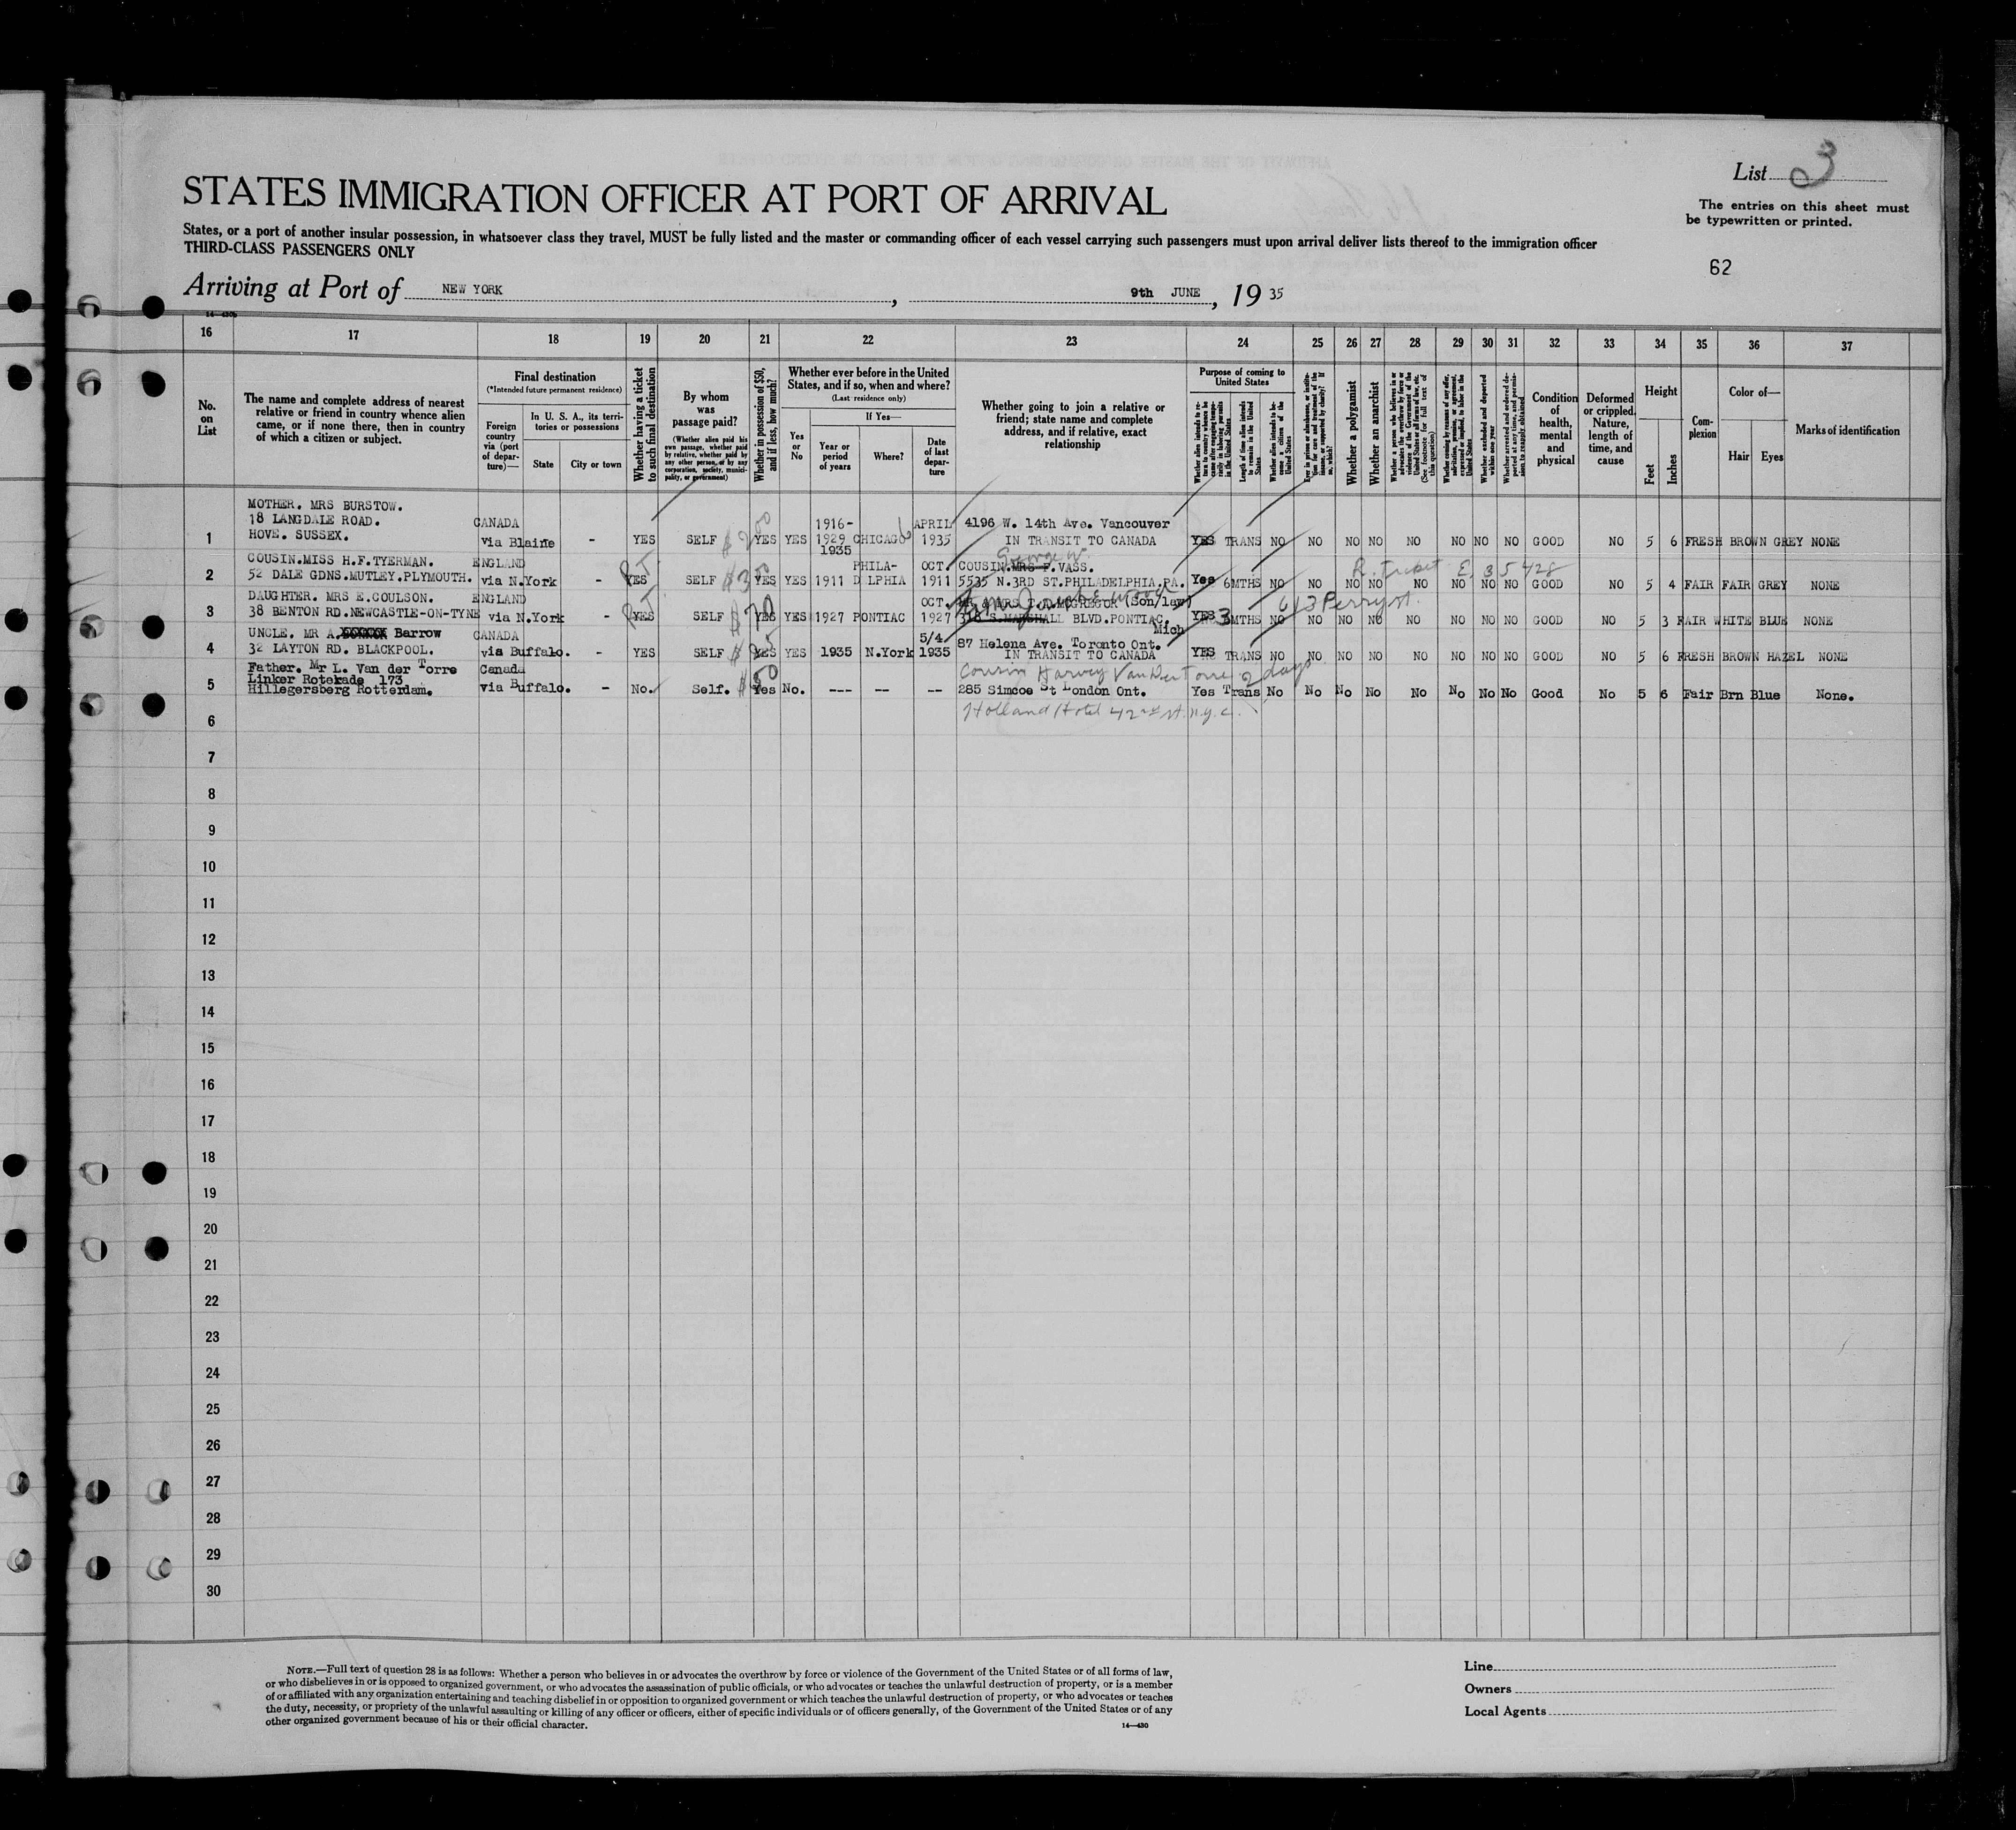 List 3
STATES IMMIGRATION OFFICER AT PORT OF ARRIVAL
The entries on this sheet must
be typewritten or printed.
States, or a port of another insular possession, in whatsoever class they travel, MUST be fully listed and the master or commanding officer of each vessel carrying such passengers must upon arrival deliver lists thereof to the immigration officer
THIRD-CLASS PASSENGERS ONLY
62
Arriving at Port of NEW YORK, 9th JUNE, 19 35
16 17 18 19 20 21 22 23 24 25 26 27 28 29 30 31 32 33 34 35 36 37
No. on List
The name and complete address of nearest relative or friend in country whence alien came, or if none there, then in country of which a citizen or subject.
Final destination
(*Intended future permanent residence)
Foreign country via (port of departure)—
In U. S. A., its territories or possessions
State
City or town
Whether having a ticket to such final destination
By whom was passage paid?
(Whether alien paid his own passage, whether paid by relative, whether paid by any other person, or by any corporation, society, municipality, or government)
Whether in possession of $50, and if less, how much?
Whether ever before in the United States, and if so, when and where?
(Last residence only)
Yes or No
If Yes—
Year or period of years
Where?
Date of last departure
Whether going to join a relative or friend; state name and complete address, and if relative, exact relationship
Purpose of coming to United States
Length of time alien intends to remain in the United States
Whether alien intends to become a citizen of the United States
Whether a polygamist
Whether an anarchist
Condition of health, mental and physical
Deformed or crippled. Nature, length of time, and cause
Height
Feet
Inches
Complexion
Color of—
Hair
Eyes
Marks of identification
MOTHER. MRS BURSTOW.
18 LANGDALE ROAD. CANADA 1916- APRIL 4196 W. 14th Ave. Vancouver
1 HOVE. SUSSEX. via Blaine - YES SELF YES YES 1929 CHICAGO 1935 IN TRANSIT TO CANADA YES TRANS NO NO NO NO NO NO NO NO GOOD NO 5 6 FRESH BROWN GREY NONE
1935
George W.
COUSIN.MISS H.F.TYERMAN. ENGLAND PHILA- OCT. COUSIN.MRS F.VASS. R. Ticket E 35428
2 52 DALE GDNS.MUTLEY.PLYMOUTH. via N.York - YES SELF YES YES 1911 D LPHIA 1911 5535 N.3RD ST.PHILADELPHIA.PA. Yes 6MTHS NO NO NO NO NO NO NO NO GOOD NO 5 4 FAIR FAIR GREY NONE
DAUGHTER. MRS E.COULSON. ENGLAND OCT. MRS T.D.MCGREGOR (Son/law) 613 Perry st.
3 38 BENTON RD.NEWCASTLE-ON-TYNE via N.York - YES SELF $ 70 YES YES 1927 PONTIAC 1927 318 S.MARSHALL BLVD.PONTIAC. Mich YES 3 MTHS NO NO NO NO NO NO NO NO GOOD NO 5 3 FAIR WHITE BLUE NONE
UNCLE. MR A. Barrow CANADA 5/4 87 Helena Ave. Toronto Ont.
4 32 LAYTON RD. BLACKPOOL. via Buffalo. - YES SELF YES YES 1935 N.York 1935 IN TRANSIT TO CANADA YES TRANS NO NO NO NO NO NO NO NO GOOD NO 5 6 FRESH BROWN HAZEL NONE
Father. Mr L. Van der Torre Canada Cousin Harvey Van Der Torre 2 days
Linker Rotekade 173
5 Hillegersberg Rotterdam. via Buffalo. - No. Self. $ 50 Yes No. --- -- -- 285 Simcoe St London Ont. Yes Trans No No No No No No No No Good No 5 6 Fair Brn Blue None.
6 Holland Hotel 42nd st. n.y.c.
7
8
9
10
11
12
13
14
15
16
17
18
19
20
21
22
23
24
25
26
27
28
29
30
NOTE.—Full text of question 28 is as follows: Whether a person who believes in or advocates the overthrow by force or violence of the Government of the United States or of all forms of law,
or who disbelieves in or is opposed to organized government, or who advocates the assassination of public officials, or who advocates or teaches the unlawful destruction of property, or is a member
of or affiliated with any organization entertaining and teaching disbelief in or opposition to organized government or which teaches the unlawful destruction of property, or who advocates or teaches
the duty, necessity, or propriety of the unlawful assaulting or killing of any officer or officers, either of specific individuals or of officers generally, of the Government of the United States or of any
other organized government because of his or their official character.
14—430
Line
Owners
Local Agents